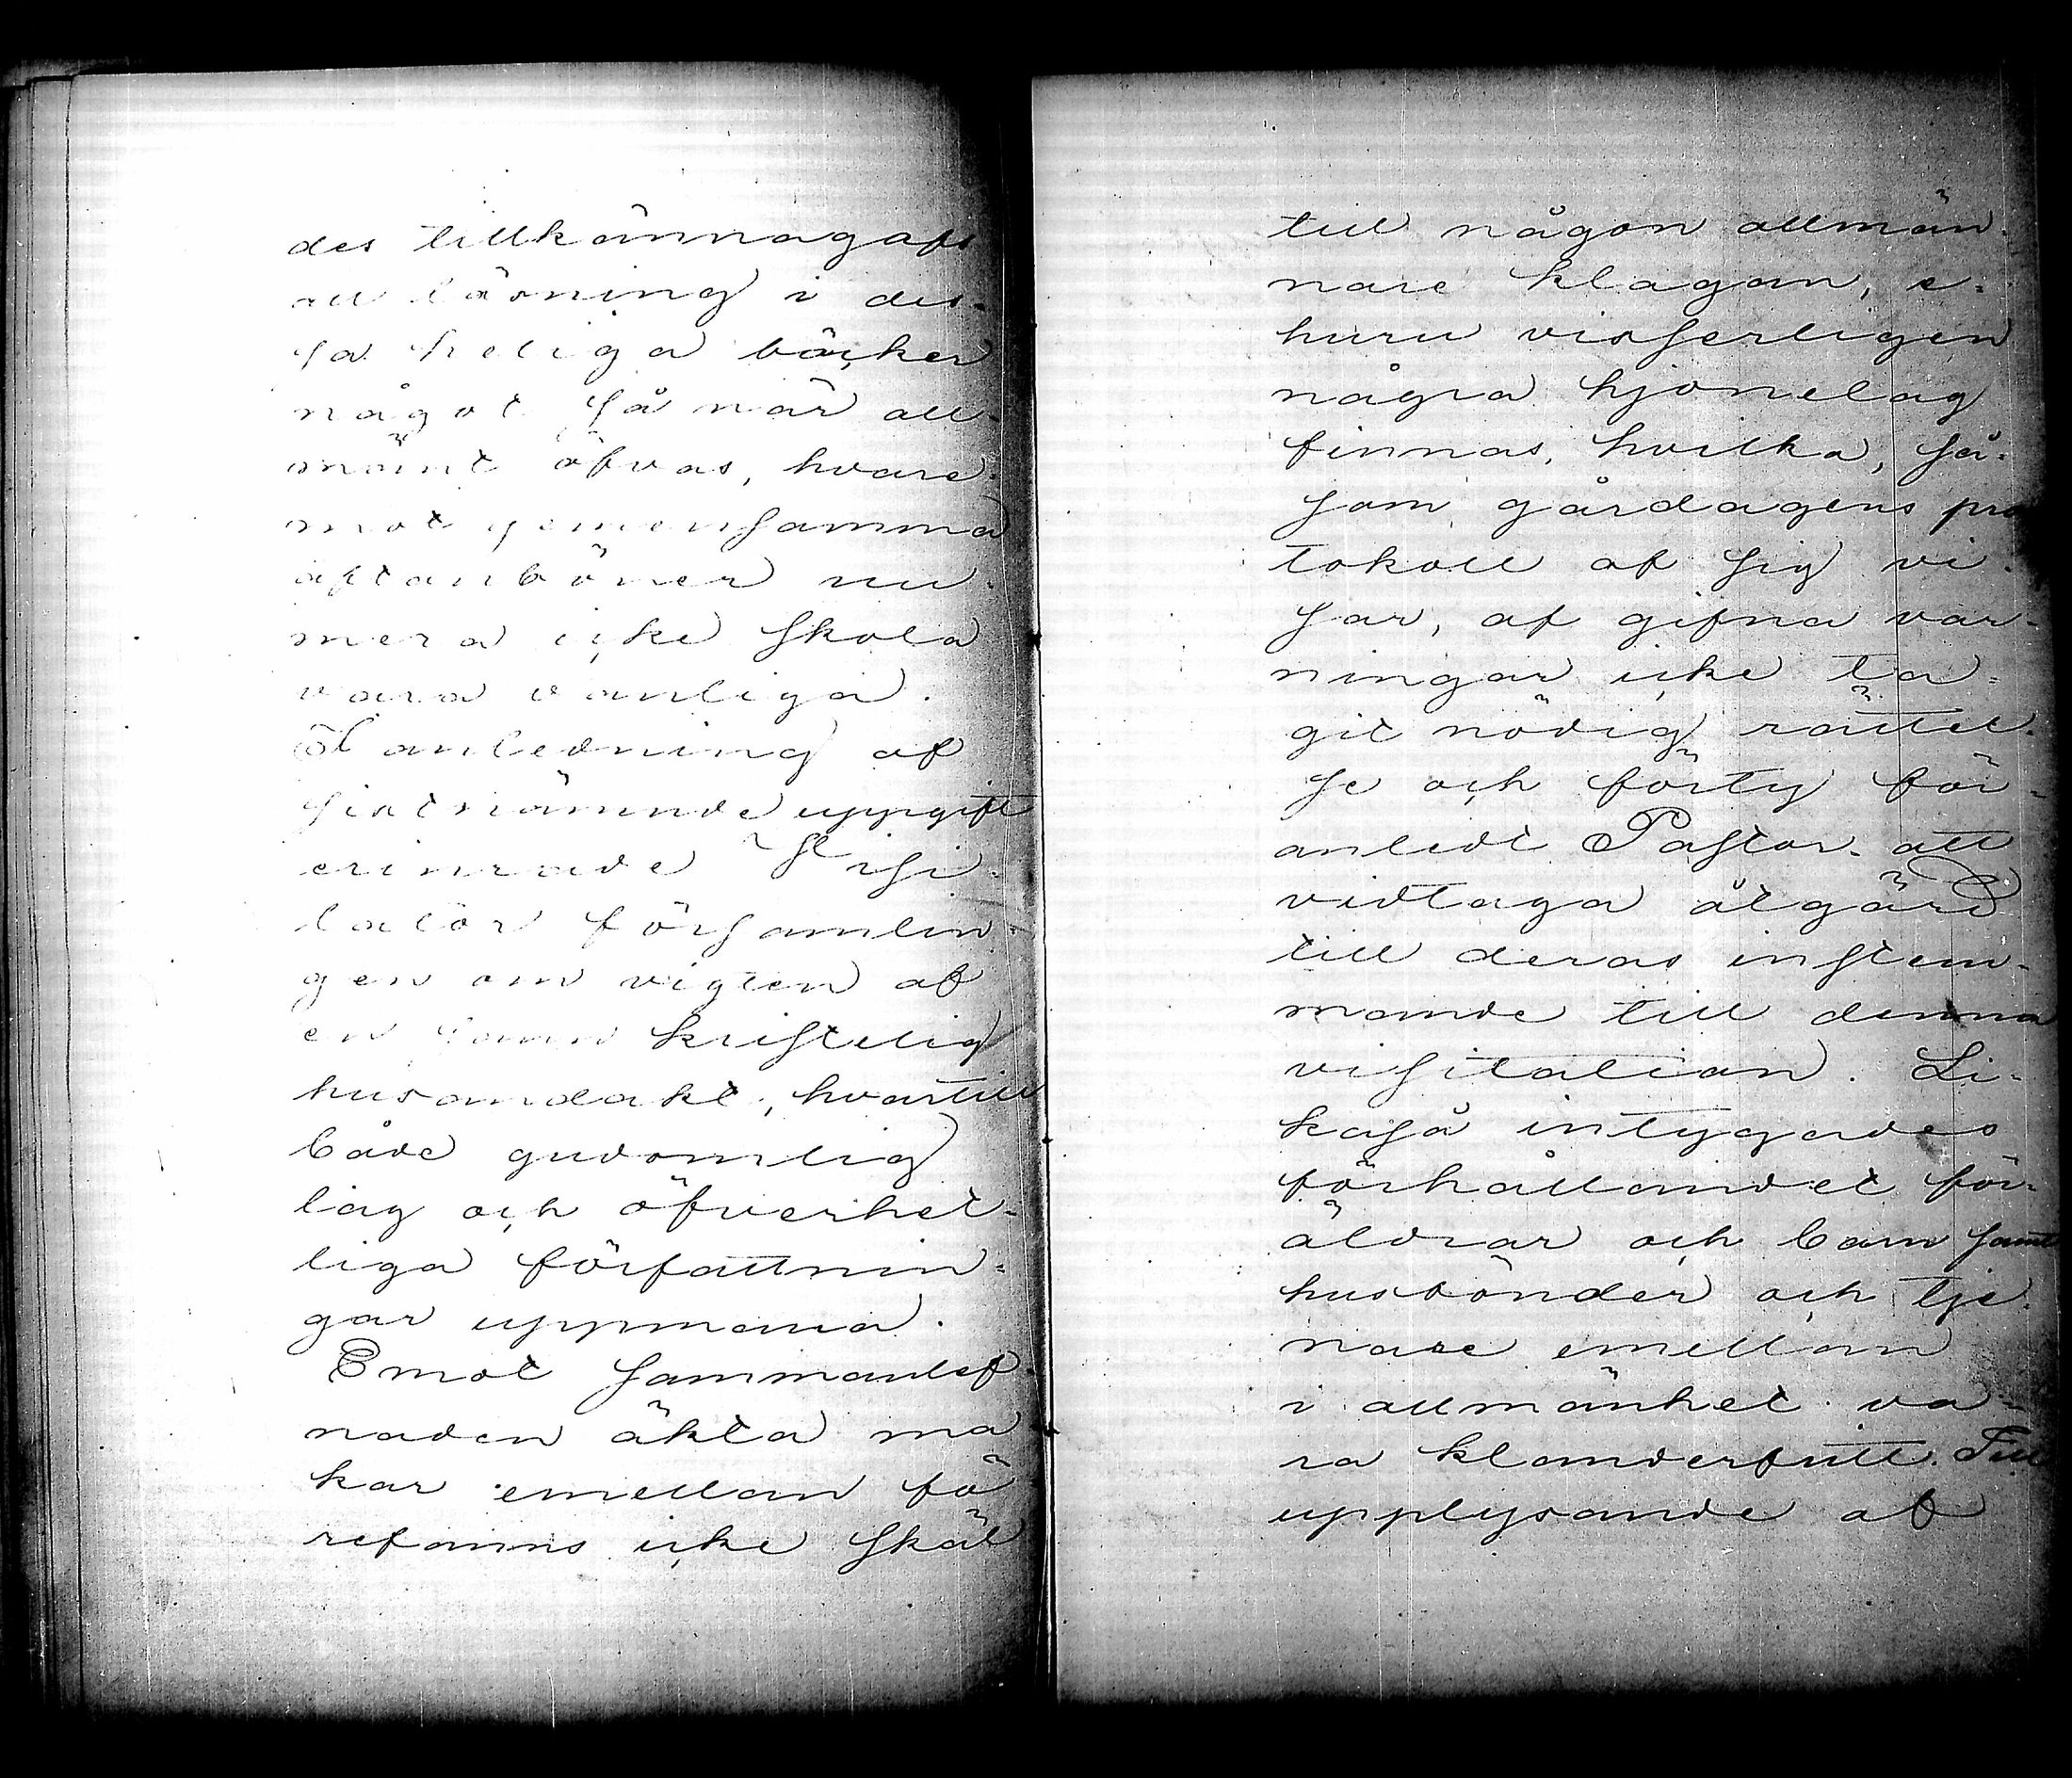 des tillkännagafs
att läsning i des-
sa heliga böcker
något så när all-
mänt öfvas, hvare-
mot gemensamma
aftonböner nu-
mera icke skola
vara vanliga.
I anledning af
sistnämnde uppgift
erinrade Visi-
tator församlin-
gen om vigten af
en sann kristelig
husandakt, hvartill
både gudomlig
lag och öfverhet-
liga författnin-
gar uppmana.
Emot sammanlef-
naden äkta ma
kar emellan fö
refanns icke skäl
till någon allmän-
nare klagan, e-
huru visserligen
några hjonelag
finnas, hvilka, så-
som gårdagens pro
tokoll af sig vi-
sar, af gifna var-
ningar icke ta-
git nödig rättel-
se och förty för-
anledt Pastor att
vidtaga åtgärd
till deras instem-
mande till denna
visitation. Li-
kaså intygades
förhållandet för-
äldrar och barn samt
husbönder och tje-
nare emellan
i allmänhet va-
ra klanderfritt. Till
upplysande af